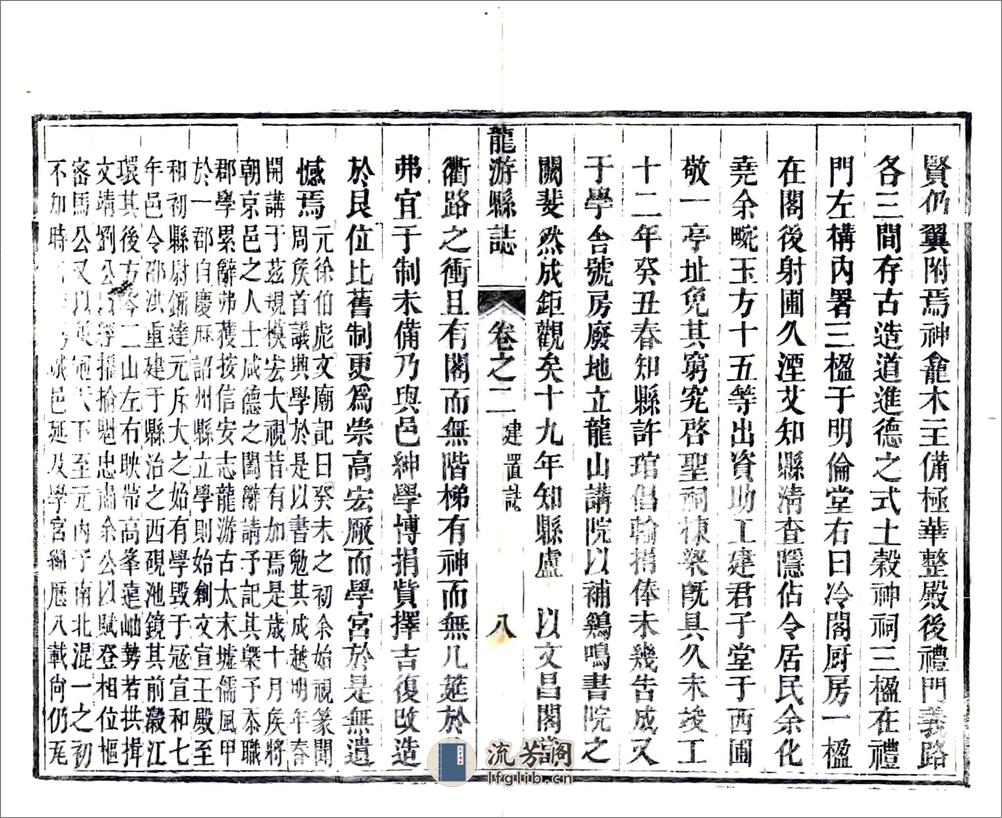 賢仍翼附焉神龕木主備極華整殿後禮門義路
各三間存古造道進德之式土穀神祠三楹在禮
門左構內署三楹于明倫堂右曰冷閣厨房一楹
在閣後射圃久湮艾知縣清查隱佔令居民余化
堯余畹玉方十五等出資助工建君子堂于西圃
敬一亭址免其窮究啓聖祠棟梁旣具久未竣工
十二年癸丑春知縣許琯倡翰捐俸未幾告成又
于學舍號房廢地立龍山講院以補鷄鳴書院之
闕斐然成鉅觀矣十九年知縣盧 以文昌閣
龍游縣誌 卷之二 建置誌 八
衢路之衝且有閣而無階梯有神而無几筵於
弗宜于制未備乃與邑紳學博捐貲擇吉復改造
於艮位比舊制更爲崇高宏厰而學宮於是無遺
憾焉
元徐伯彪文廟記曰癸未之初余始視篆聞
周矦首議興學於是以書勉其成越明年春
開講于茲規模宏大視昔有加焉是歲十月矦將
朝京邑之人士咸德之闔辭請予記其槩予忝職
郡學累辭弗獲按信安志龍游古太末墟儒風甲
於一郡自慶曆詔州縣立學則始創文宣王殿至
和初縣尉鍾達元斥大之始有學毁于冠宣和七
年邑令邵浃重建于縣治之西硯池鏡其前瀫江
環其後方岑二山左右映帶高峯遠岫勢若拱揖
文靖劉公 搶魁忠肅余公以賦登相位樞
審馬公又以 下至元內子南北混一之初
不加時 邑延及學宮綿厯八載尚仍茺
流芳閣
lfglib.cn